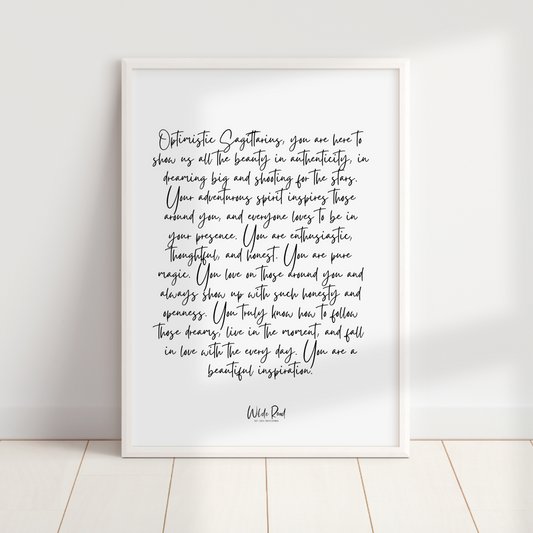 Optimistic Sagittarius, you are here to
show us all the beauty in authenticity, in
dreaming big and shooting for the stars.
Your adventurous spirit inspires those
around you, and everyone loves to be in
your presence. You are enthusiastic,
thoughtful, and honest. You are pure
magic. You love on those around you and
always show up with such honesty and
openness. You truly know how to follow
those dreams, live in the moment, and fall
in love with the every day. You are a
beautiful inspiration.
Wilde Road